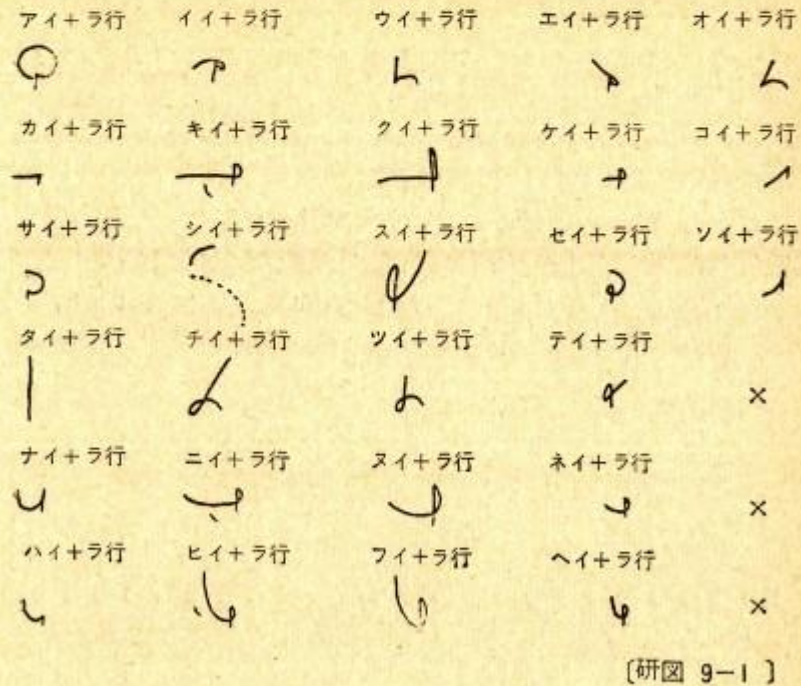 アイ+ラ行 イイ+ラ行 ウイ+ラ行 エイ+ラ行 オイ+ラ行
カイ+ラ行 キイ+ラ行 クイ+ラ行 ケイ+ラ行 コイ+ラ行
サイ+ラ行 シイ+ラ行 スイ+ラ行 セイ+ラ行 ソイ+ラ行
タイ+ラ行 チイ+ラ行 ツイ+ラ行 テイ+ラ行
×
ナイ+ラ行 ニイ+ラ行 ヌイ+ラ行 ネイ+ラ行
×
ハイ+ラ行 ヒイ+ラ行 フイ+ラ行 ヘイ+ラ行
×
〔研図 9-1〕